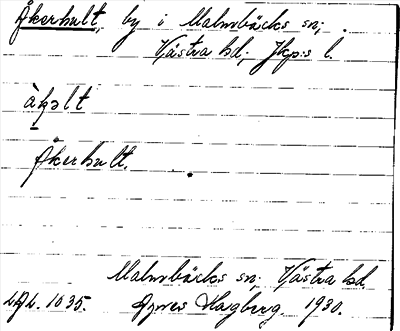 Åkerhult, by i Malmbäcks sn;
Västra hd; Jkp:s l.
àkəlt
Åkerhult.
Malmbäcks sn; Västra hd.
1035. Agnes Hagberg 1930.